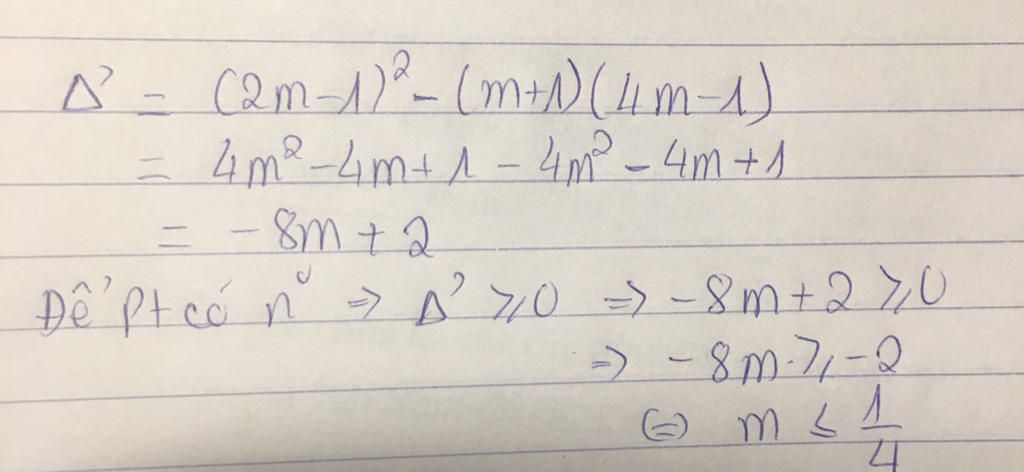 Δ' = (2m-1)² - (m+1)(4m-1)
= 4m² - 4m + 1 - 4m² - 4m + 1
= -8m + 2
Để pt có nº => Δ' ≥ 0 => -8m + 2 ≥ 0
=> -8m ≥ -2
(=) m ≤ 1/4